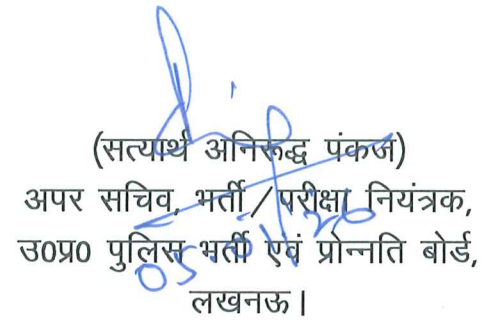 (सत्यार्थ अनिरूद्ध पंकज)
अपर सचिव, भर्ती/परीक्षा नियंत्रक,
उ0प्र0 पुलिस भर्ती एवं प्रोन्नति बोर्ड,
लखनऊ।